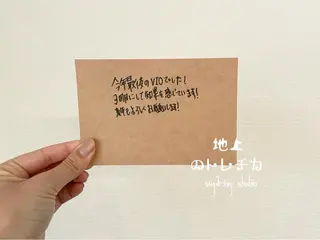 今年最後のVIOでした!
3回にして効果を感じています!
来年もよろしくお願いします!
地上
のトレチカ